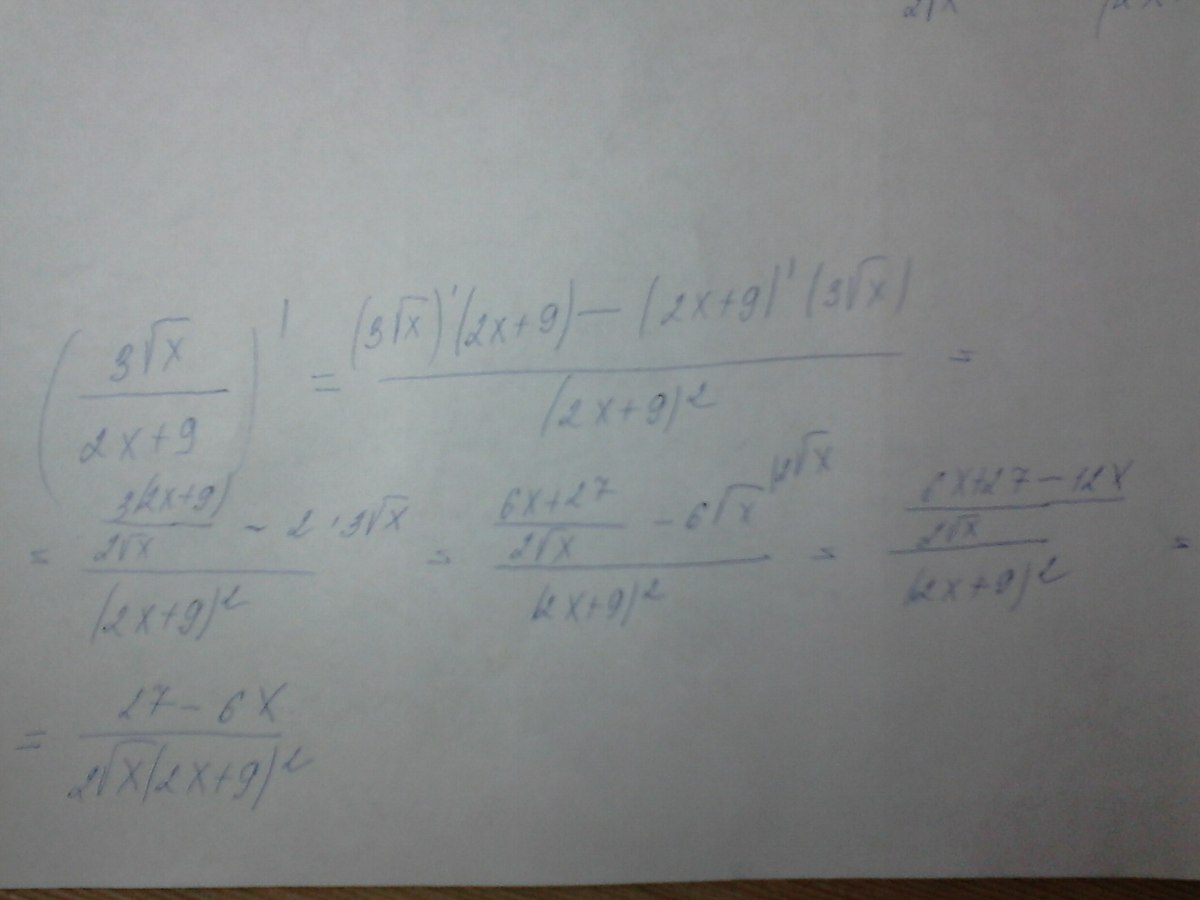 2√x (2x
(3√x / 2x+9)' = ((3√x)'(2x+9) — (2x+9)'(3√x)) / (2x+9)² =
= (3(2x+9) / 2√x - 2·3√x) / (2x+9)² = ((6x+27) / 2√x - 6√x |2√x) / (2x+9)² = ((6x+27-12x) / 2√x) / (2x+9)² =
= (27-6x) / 2√x(2x+9)²